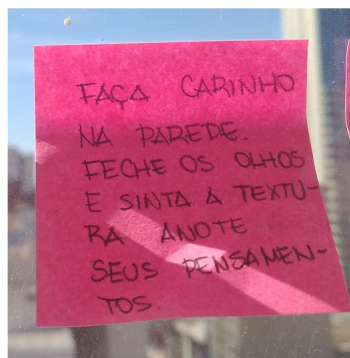 FAÇA CARINHO
NA PAREDE.
FECHE OS OLHOS
E SINTA A TEXTU-
RA ANOTE
SEUS PENSAMEN-
TOS.